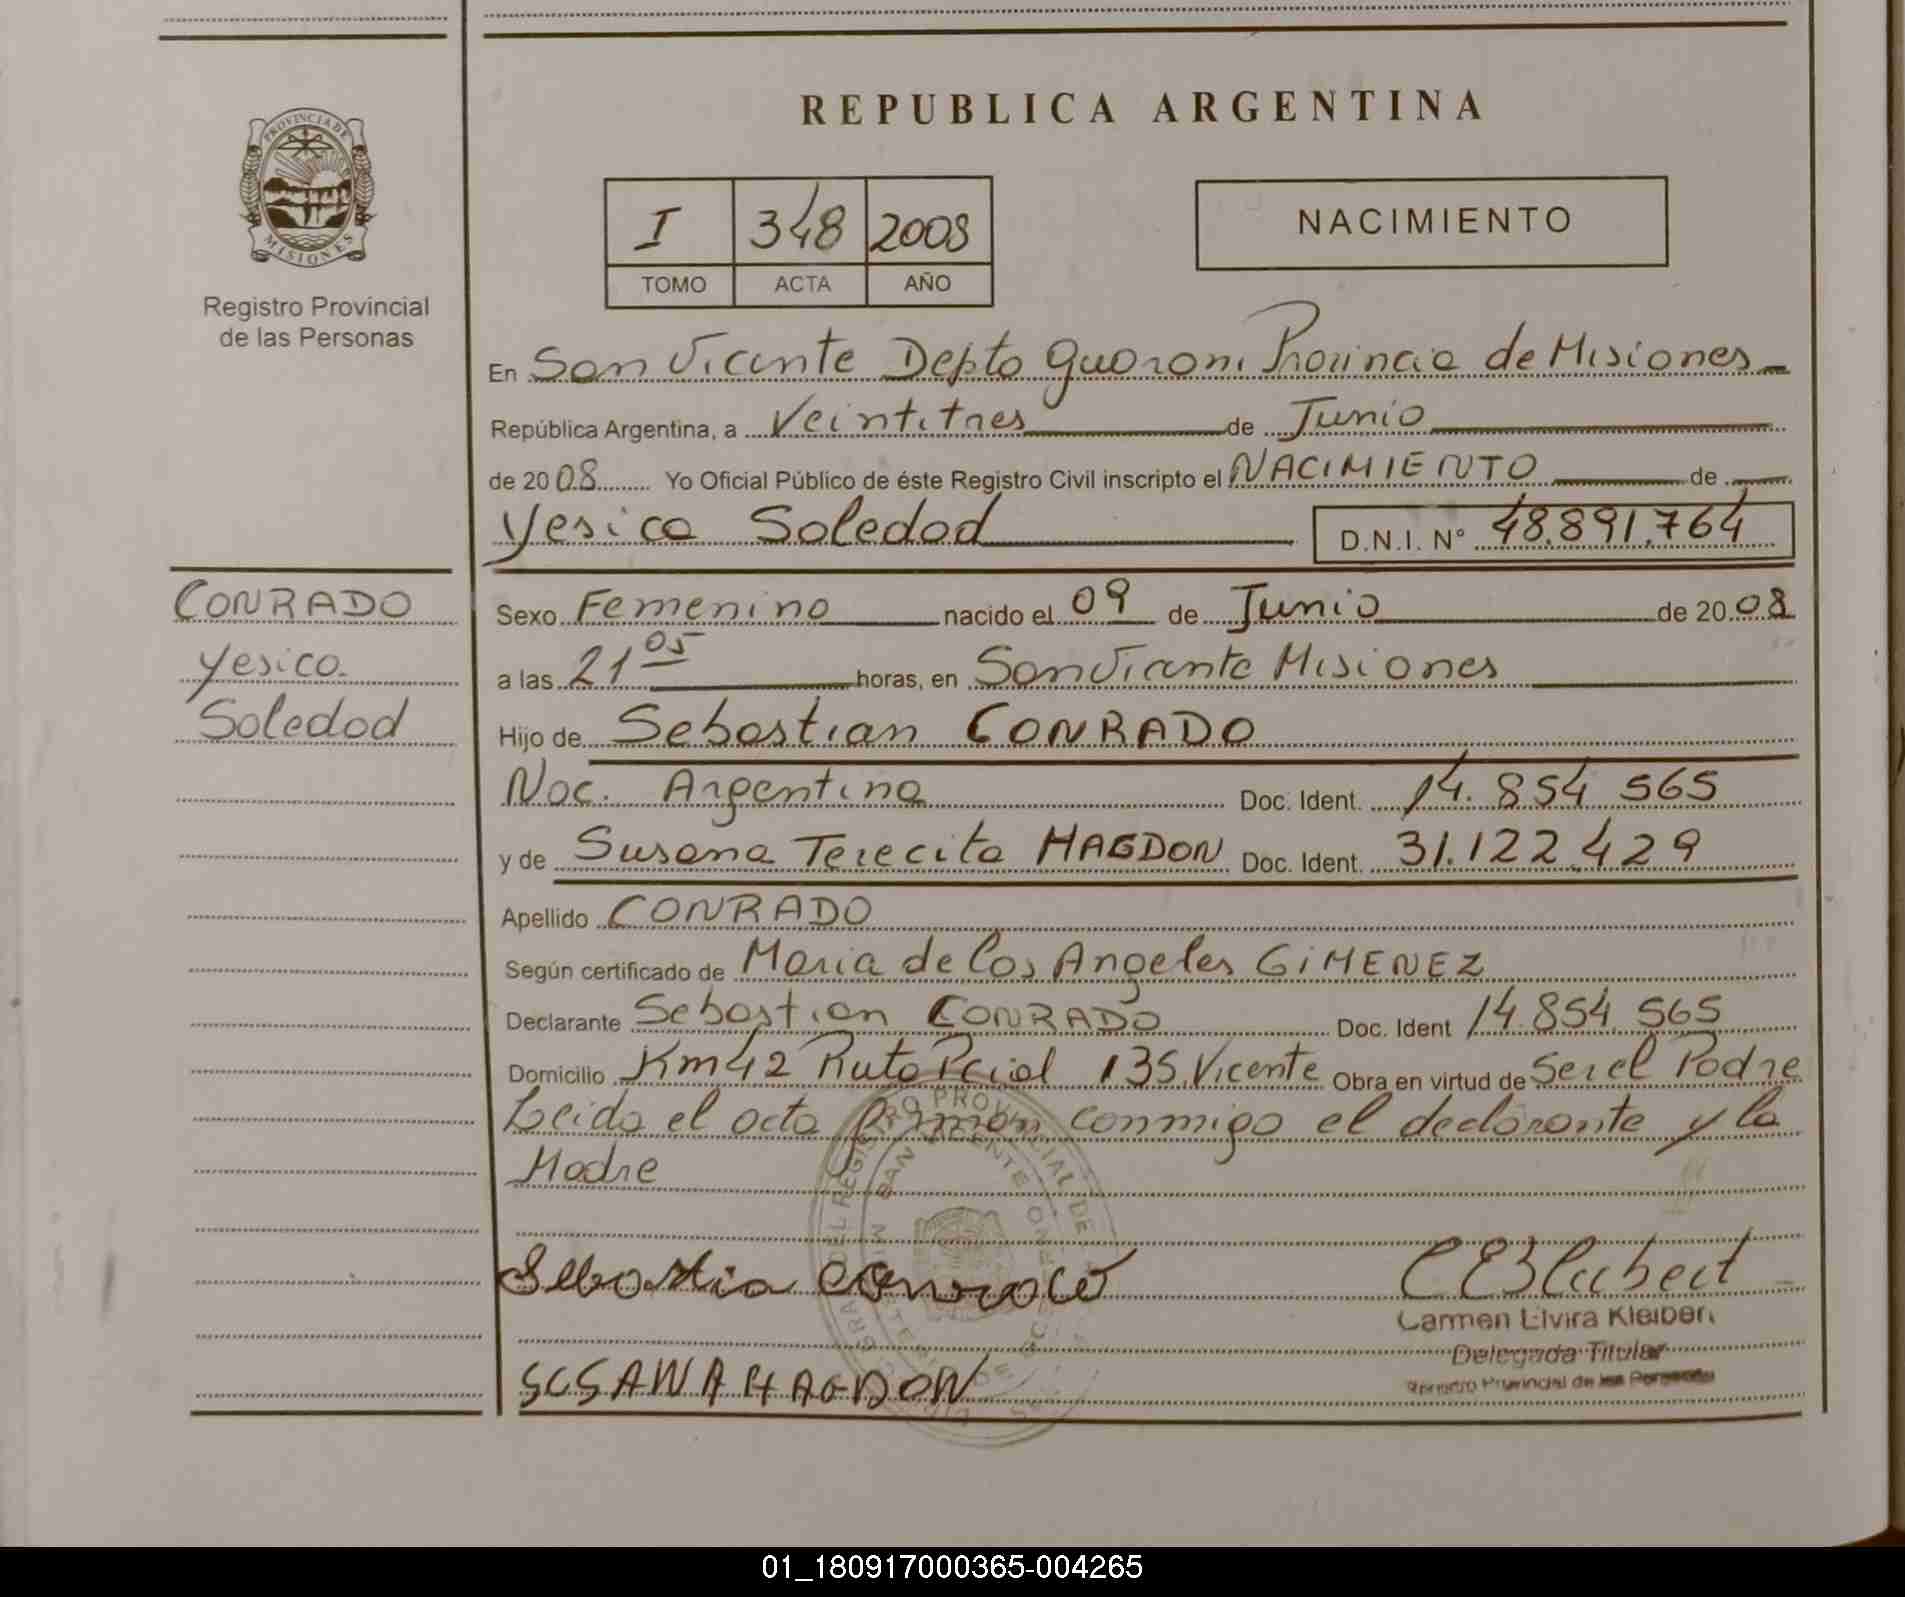 REPUBLICA ARGENTINA
PROVINCIA DE
MISIONES
Registro Provincial
de las Personas
I 348 2008
TOMO ACTA AÑO
NACIMIENTO
En San Vicente Depto Guarani Provincia de Misiones
República Argentina, a Veintitres de Junio
de 2008 Yo Oficial Público de éste Registro Civil inscripto el NACIMIENTO de
Yesica Soledad D.N.I. N° 48.891.764
CONRADO
Yesica
Soledad
Sexo Femenino nacido el 09 de Junio de 2008
a las 21 05 horas, en San Vicente Misiones
Hijo de Sebastian CONRADO
Nac. Argentina Doc. Ident. 14.854 565
y de Susana Terecita HAGDON Doc. Ident. 31.122.429
Apellido CONRADO
Según certificado de Maria de los Angeles GIMENEZ
Declarante Sebastian CONRADO Doc. Ident 14.854.565
Domicilio Km 42 Ruta Pcial 13 S. Vicente Obra en virtud de Ser el Padre
Leida el acta firman conmigo el declarante y la
Madre
SAN VICENTE
Carmen Elvira Kleibert
SUSANA HAGDON
Delegada Titular
Registro Provincial de las Personas
01_180917000365-004265